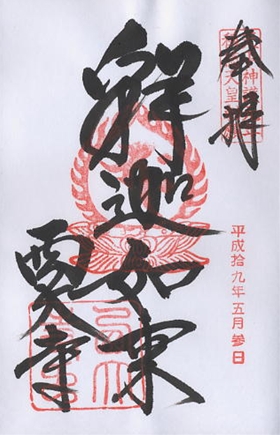 奉拝
平成拾九年五月參日
釋迦如来
西大寺